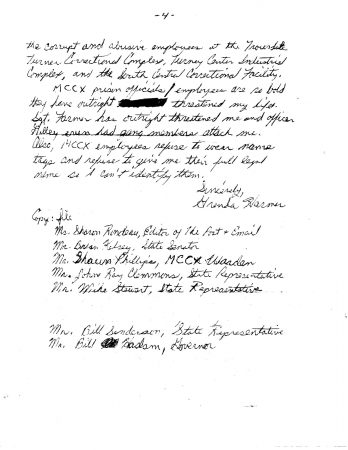 - 4 -
the corrupt and abusive employees at the Trousdale
Turner Correctional Complex, Turney Center Industrial
Complex, and the South Central Correctional Facility.
MCCX prison officials/employees are so bold
they have outright threatened my life.
Sgt. Farmer has outright threatened me and officer
even had gang members attack me.
Also, MCCX employees refuse to wear name
tags and refuse to give me their full legal
name so I can't identify them.
Sincerely,
Grenda Harmer
Copy: file
Ms. Sharon Rondeau, Editor of The Post & Email
Mr. Brian Kelsey, State Senator
Mr. Shawn Phillips, MCCX Warden
Mr. John Ray Clemmons, State Representative
Mr. Mike Stewart, State Representative
Mr. Bill Sanderson, State Representative
Mr. Bill Haslam, Governor